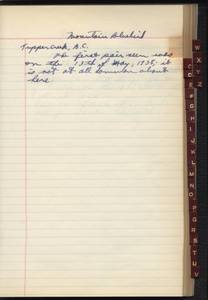 Mountain Bluebird
Tupper Creek, B.C.
first pair seen was
on the 13th of May, 1938, it
is not at all common about
here
W
X
Y
Z
C
D
E
F
G
H
I
J
K
L
M
N
O
P
Q
R
S
T
U
V